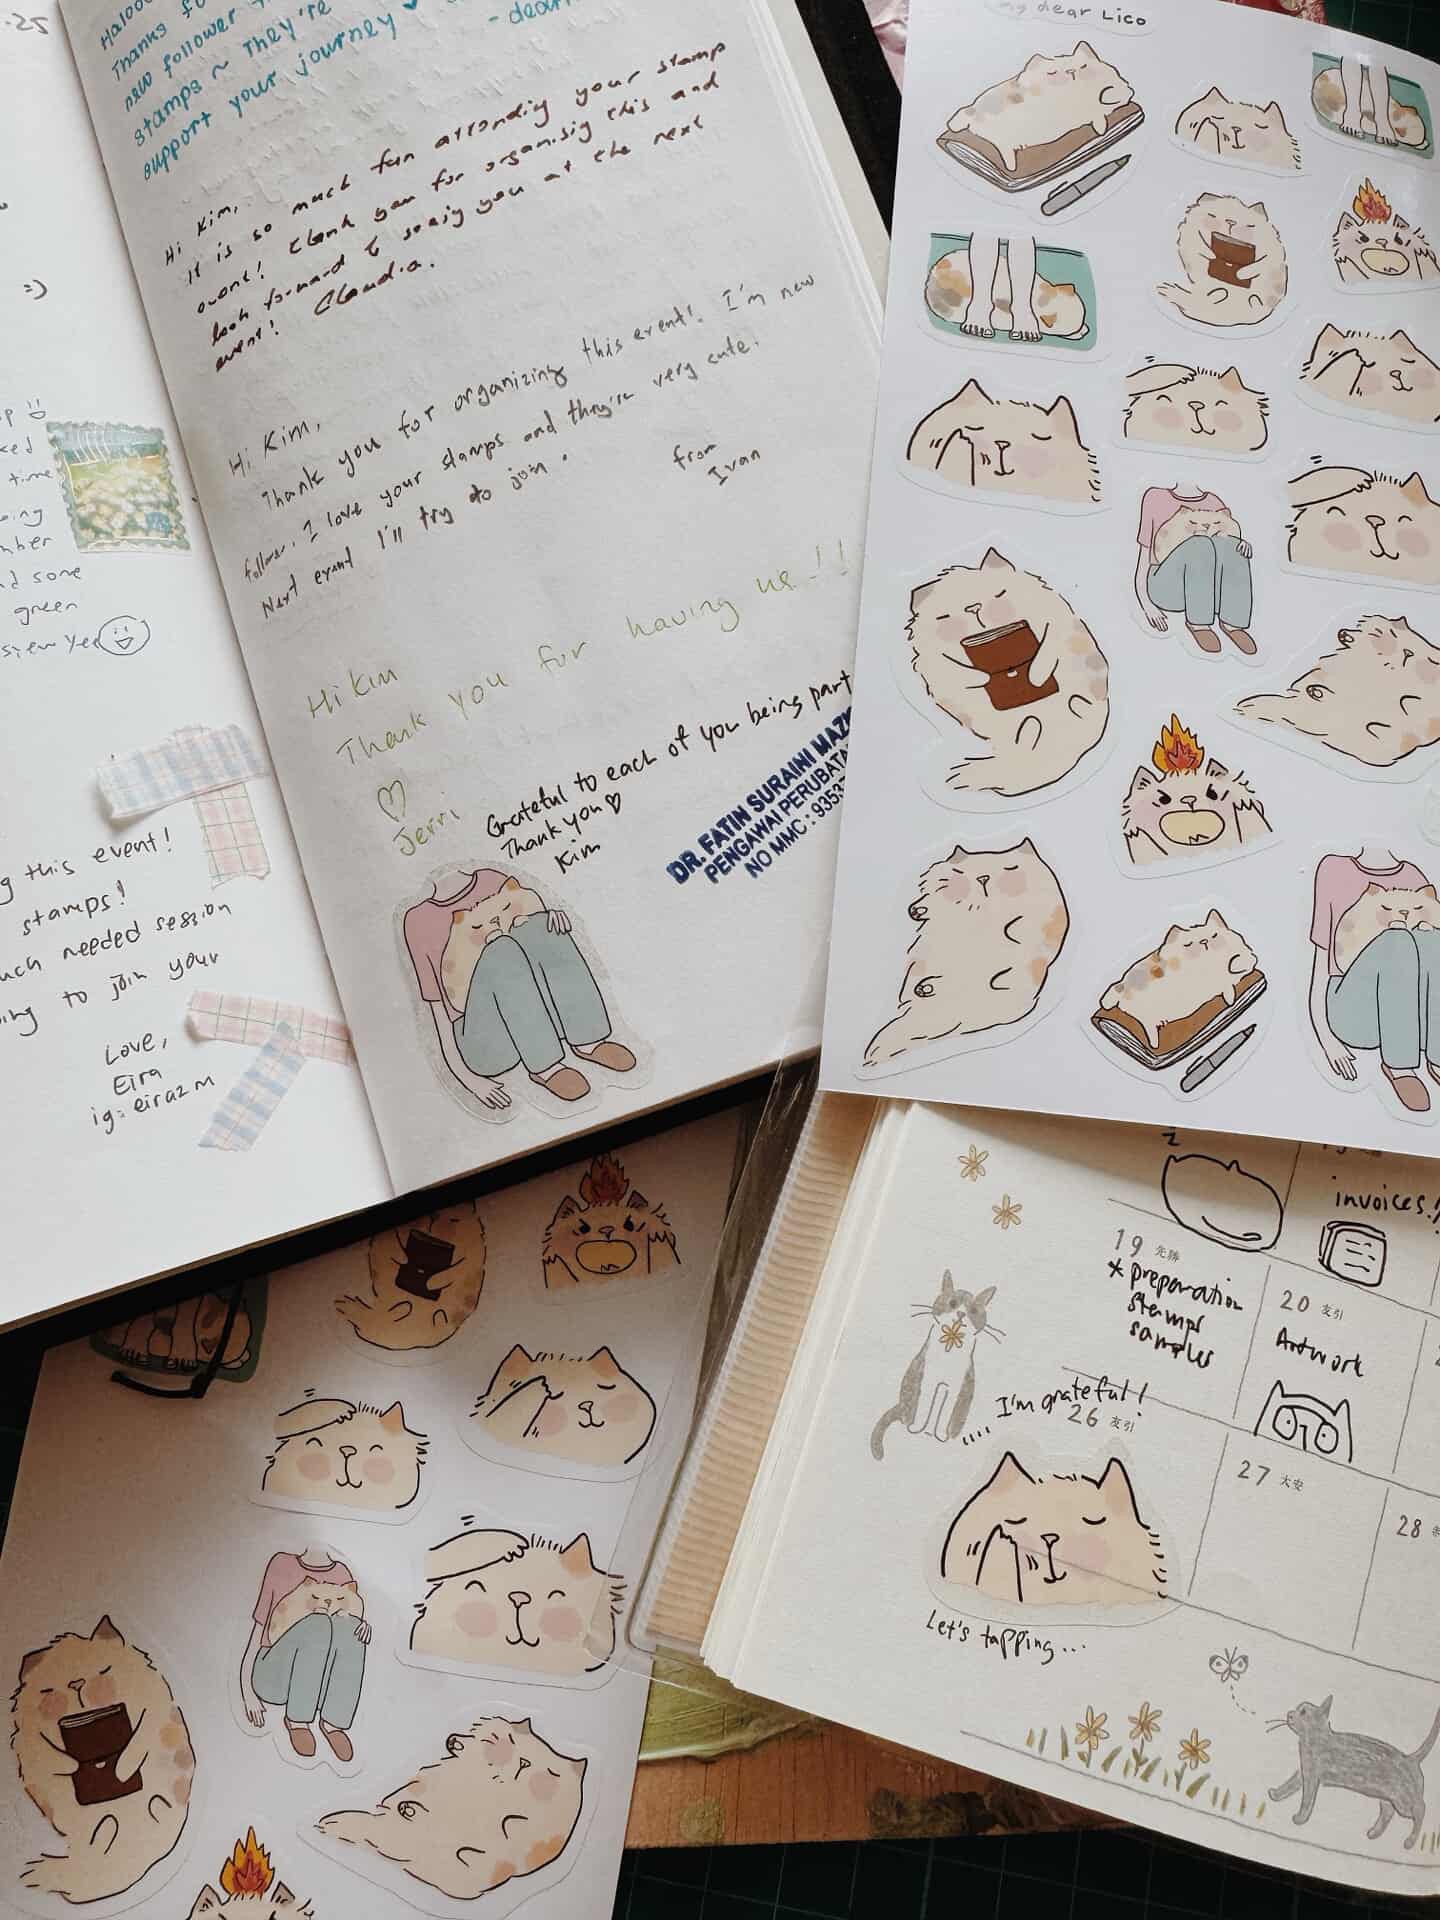 Thanks fo
new follower
stamps ~ They're
support your journey ♡
- dearr
Hi Kim,
It is so much fun attending your stamp
event! Thank you for organising this and
look forward to seeing you at the next
event! Claudia.
Hi Kim,
Thank you for organizing this event!. I'm new
follower. I love your stamps and they're very cute.
Next event I'll try to join.
from
Ivan
Hi Kim
Thank you for having us!!
♡
Jerri
Grateful to each of you being part
Thank you ♡
Kim
DR. FATIN SURAINI MAZ
PENGAWAI PERUBATA
NO MMC : 9353
=)
time
nd some
green
this event!
stamps!
needed session
to join your
Love,
Eira
ig: eira2m
my dear Lico
invoices!!
19 先勝
* preparation
stamps
samples
20 友引
Artwork
I'm grateful!
26 友引
27 大安
28
Let's tapping...